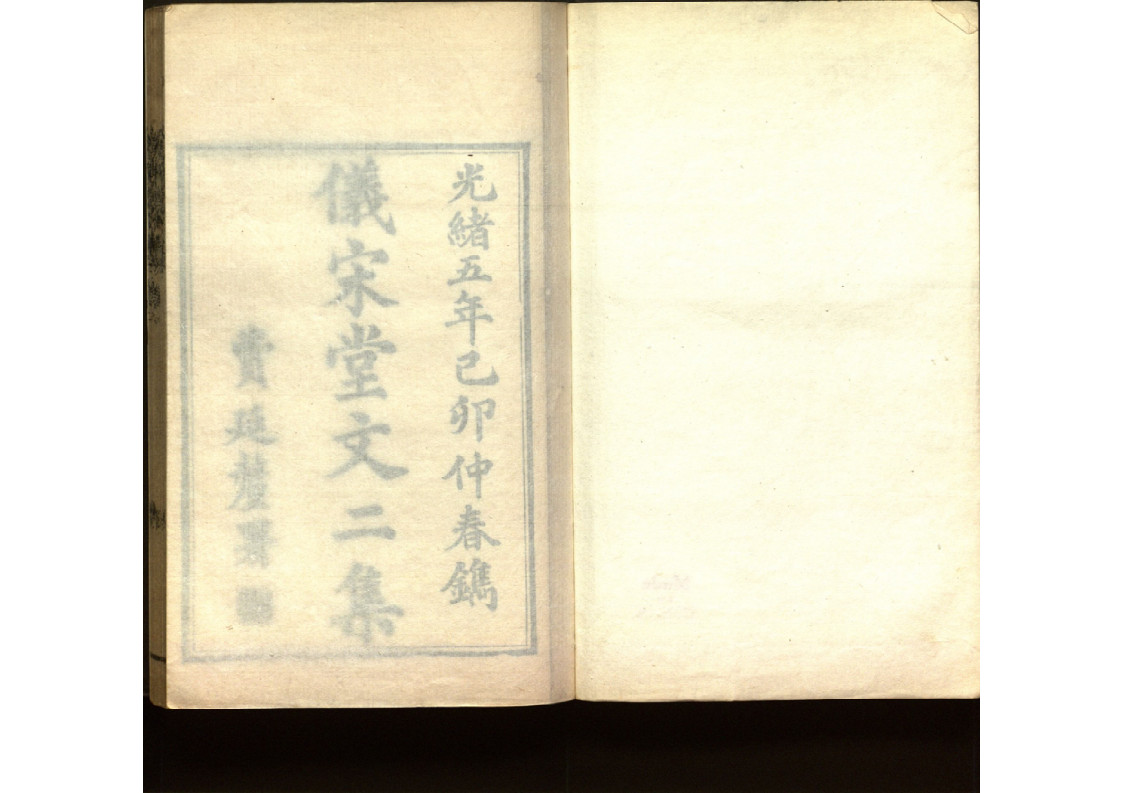 光緒五年己卯仲春鐫
儀宋堂文二集
費延釐署